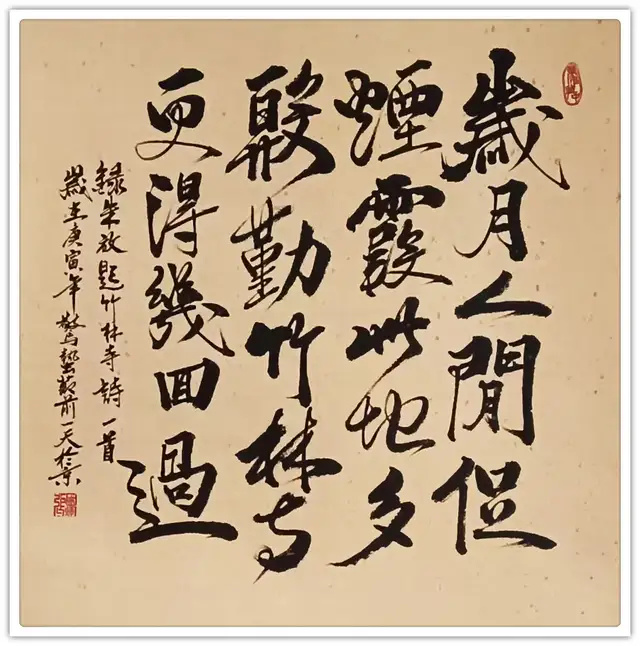 歲月人閒促
煙霞此地多
殷勤竹林寺
更得幾回過
録朱放題竹林寺詩一首
歲在庚寅年驚蟄前一天於京